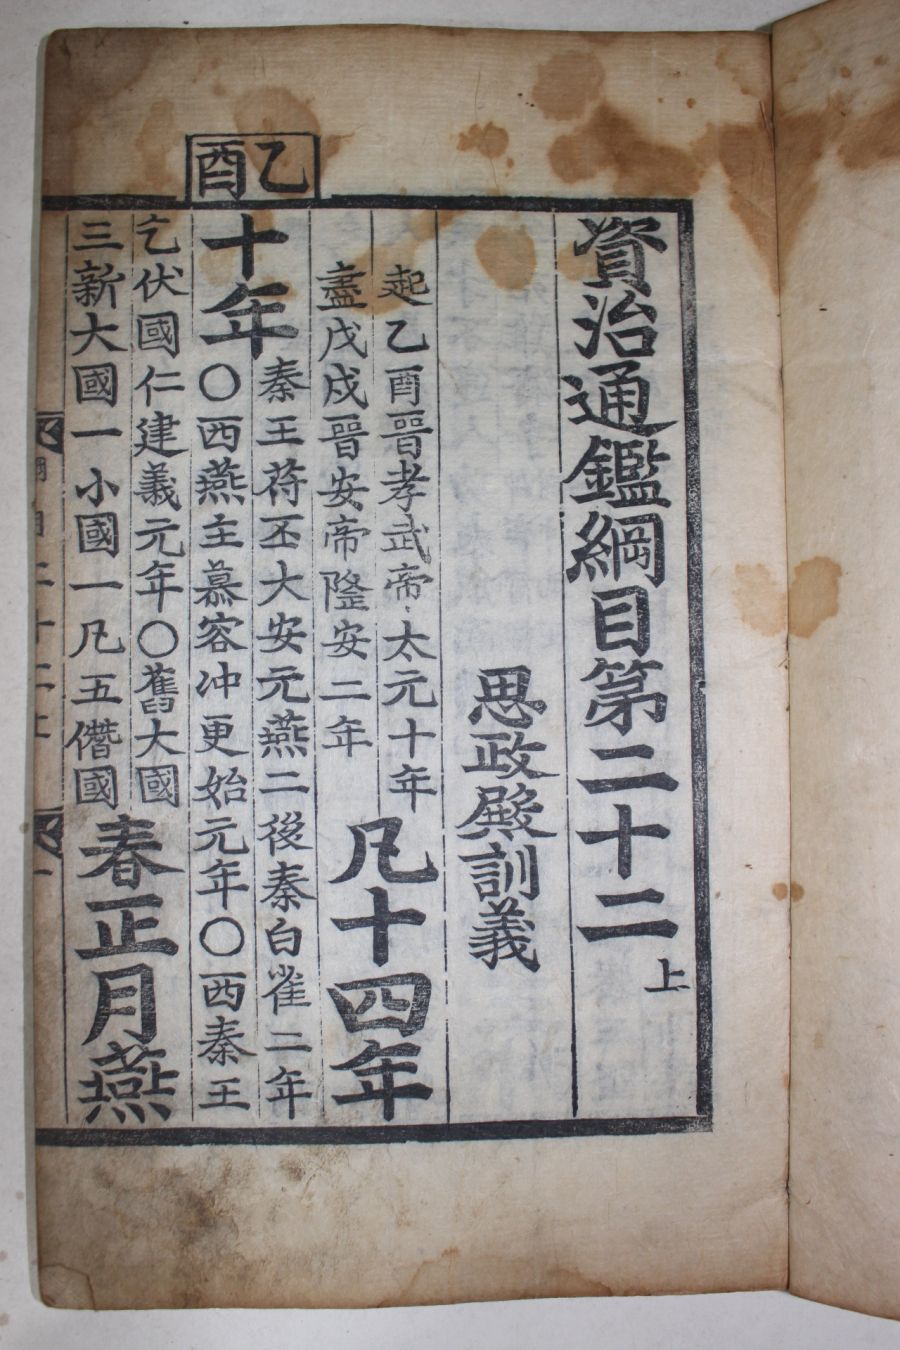 資治通鑑綱目第二十二 上
思政殿訓義
起乙酉晉孝武帝太元十年
盡戊戌晉安帝隆安二年
凡十四年
乙酉
十年
秦王苻丕大安元燕二後秦白雀二年
○西燕主慕容冲更始元年○西秦王
乞伏國仁建義元年○舊大國
三新大國一小國一凡五僭國
春正月燕